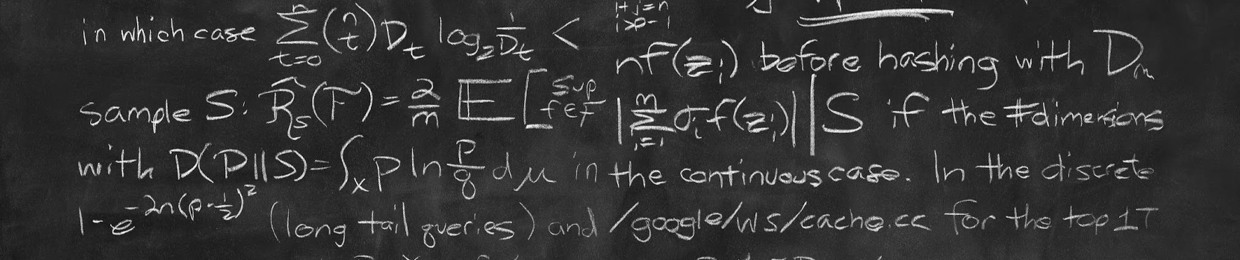 in which case ∑_{t=0}^{n} (n/t) D_t log_2 1/D_t <
i>0-1
nf(z_i) before hashing with D_m
sample S: R̂_s(F) = 2/m E[sup f∈F |∑_{i=1}^{m} σ_i f(z_i)| | S if the #dimensions
with D(P||S) = ∫_x p ln p/q dμ in the continuous case. In the discrete
1-e^{-2n(p-1/2)^2} (long tail queries) and /google/ws/cache.cc for the top 1T